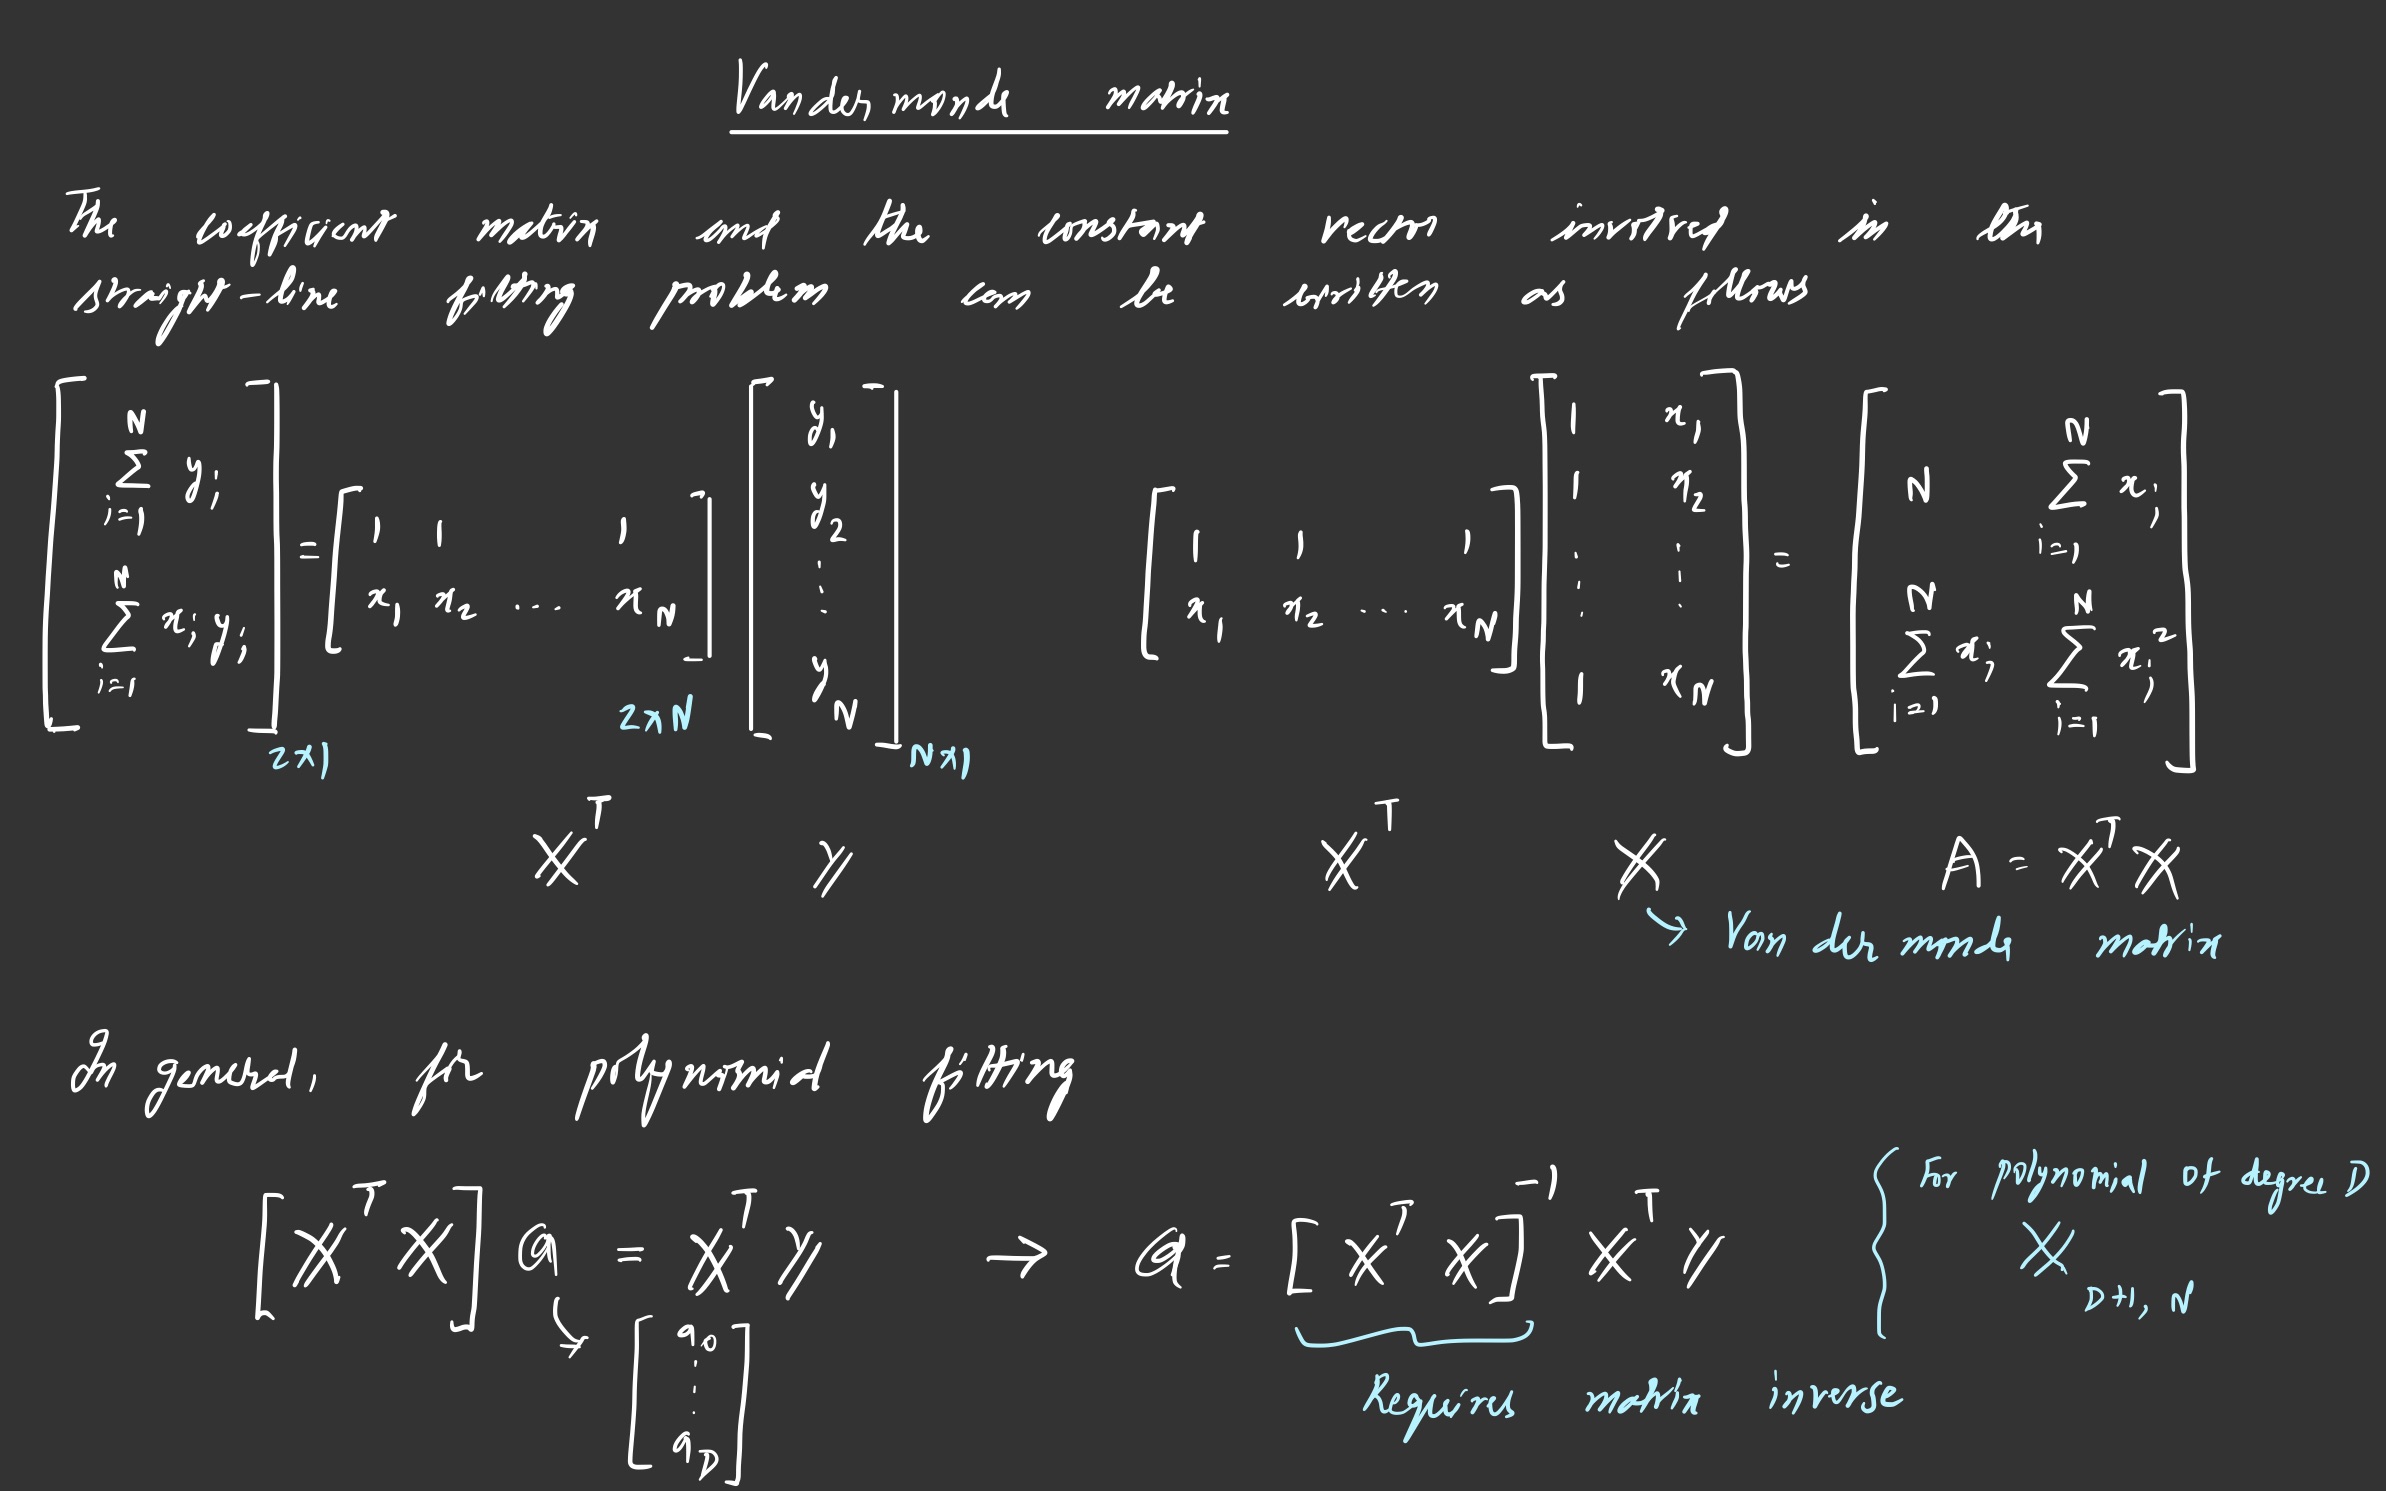 Vandermonde matrix
The coefficient matrix and the constant vector involved in the
straight-line fitting problem can be written as follows
[ N Σ i=1 y_i ; N Σ i=1 x_i y_i ] 2x1 = [ 1 1 1 ; x_1 x_2 ... x_N ] 2xN [ y_1 y_2 ⋮ y_N ] Nx1
[ 1 1 1 ; x_1 x_2 ... x_N ] [ 1 x_1 ; 1 x_2 ; ⋮ ⋮ ; 1 x_N ] = [ N N Σ i=1 x_i ; N Σ i=1 x_i N Σ i=1 x_i^2 ]
𝕏^T 𝕐 𝕏^T 𝕏 A = 𝕏^T 𝕏
→ Vandermonde matrix
In general, for polynomial fitting
[ 𝕏^T 𝕏 ] a = 𝕏^T 𝕐 → a = [ 𝕏^T 𝕏 ]^-1 𝕏^T 𝕐
[ a_0 ⋮ a_D ]
Requires matrix inverse
{ For polynomial of degree D
𝕏 D+1, N